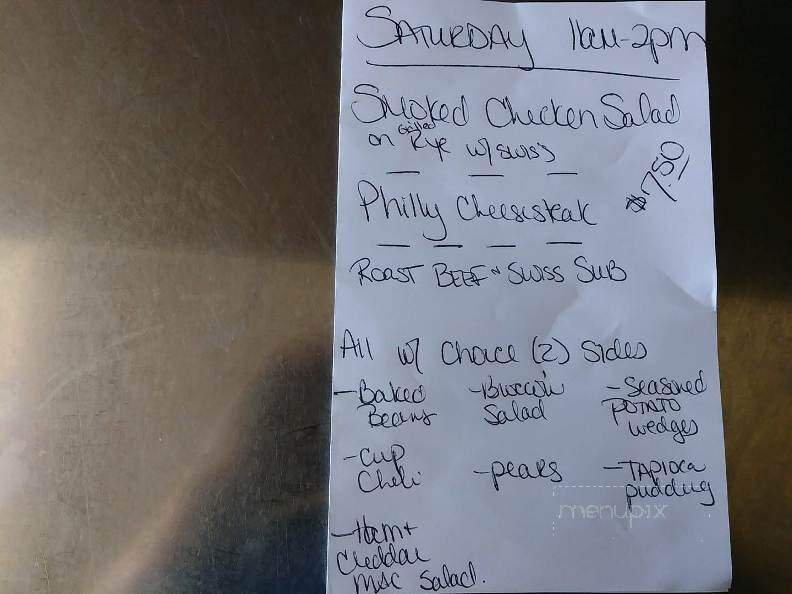 SATURDAY 11am-2pm
Smoked Chicken Salad
on Grilled Rye w/ swiss
$7.50
Philly Cheesesteak
ROAST BEEF + SWISS SUB
All w/ Choice (2) Sides
-Baked Beans
-Broccoli Salad
-Seasoned POTATO wedges
-Cup Chili
-pears
-TAPIOCA pudding
-Ham + Cheddar Mac Salad.
menupix